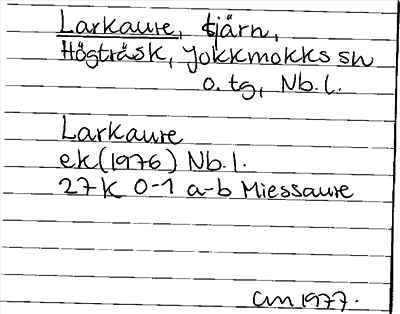 Larkaure, tjärn,
Högträsk, Jokkmokks sn
o. tg, Nb. l.
Larkaure
ek (1976) Nb. l.
27 K 0-1 a-b Miessaure
CM 1977.